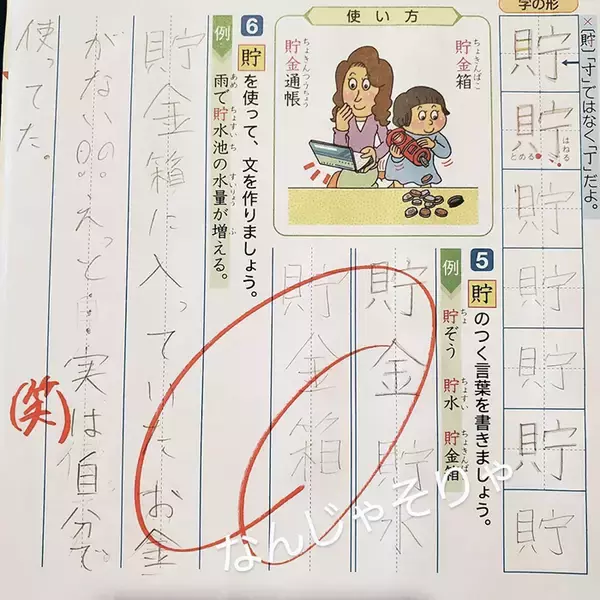 字の形
×「貯」「寸」ではなく「丁」だよ。
貯
貯
とめる
はねる
貯
貯
貯
貯
貯
使い方
貯金箱
ちょきんばこ
貯金通帳
ちょきんつうちょう
5 貯のつく言葉を書きましょう。
例 貯ぞう 貯水 貯金箱
ちょ ちょすい ちょきんば
貯金 貯水
貯金箱
6 貯を使って、文を作りましょう。
例 雨で貯水池の水量が増える。
あめ ちょすいち すいりょう ふ
貯金箱に入っていたお金
がない!!えっと…実は自分で
使ってた。
(笑)
なんじゃそりゃ